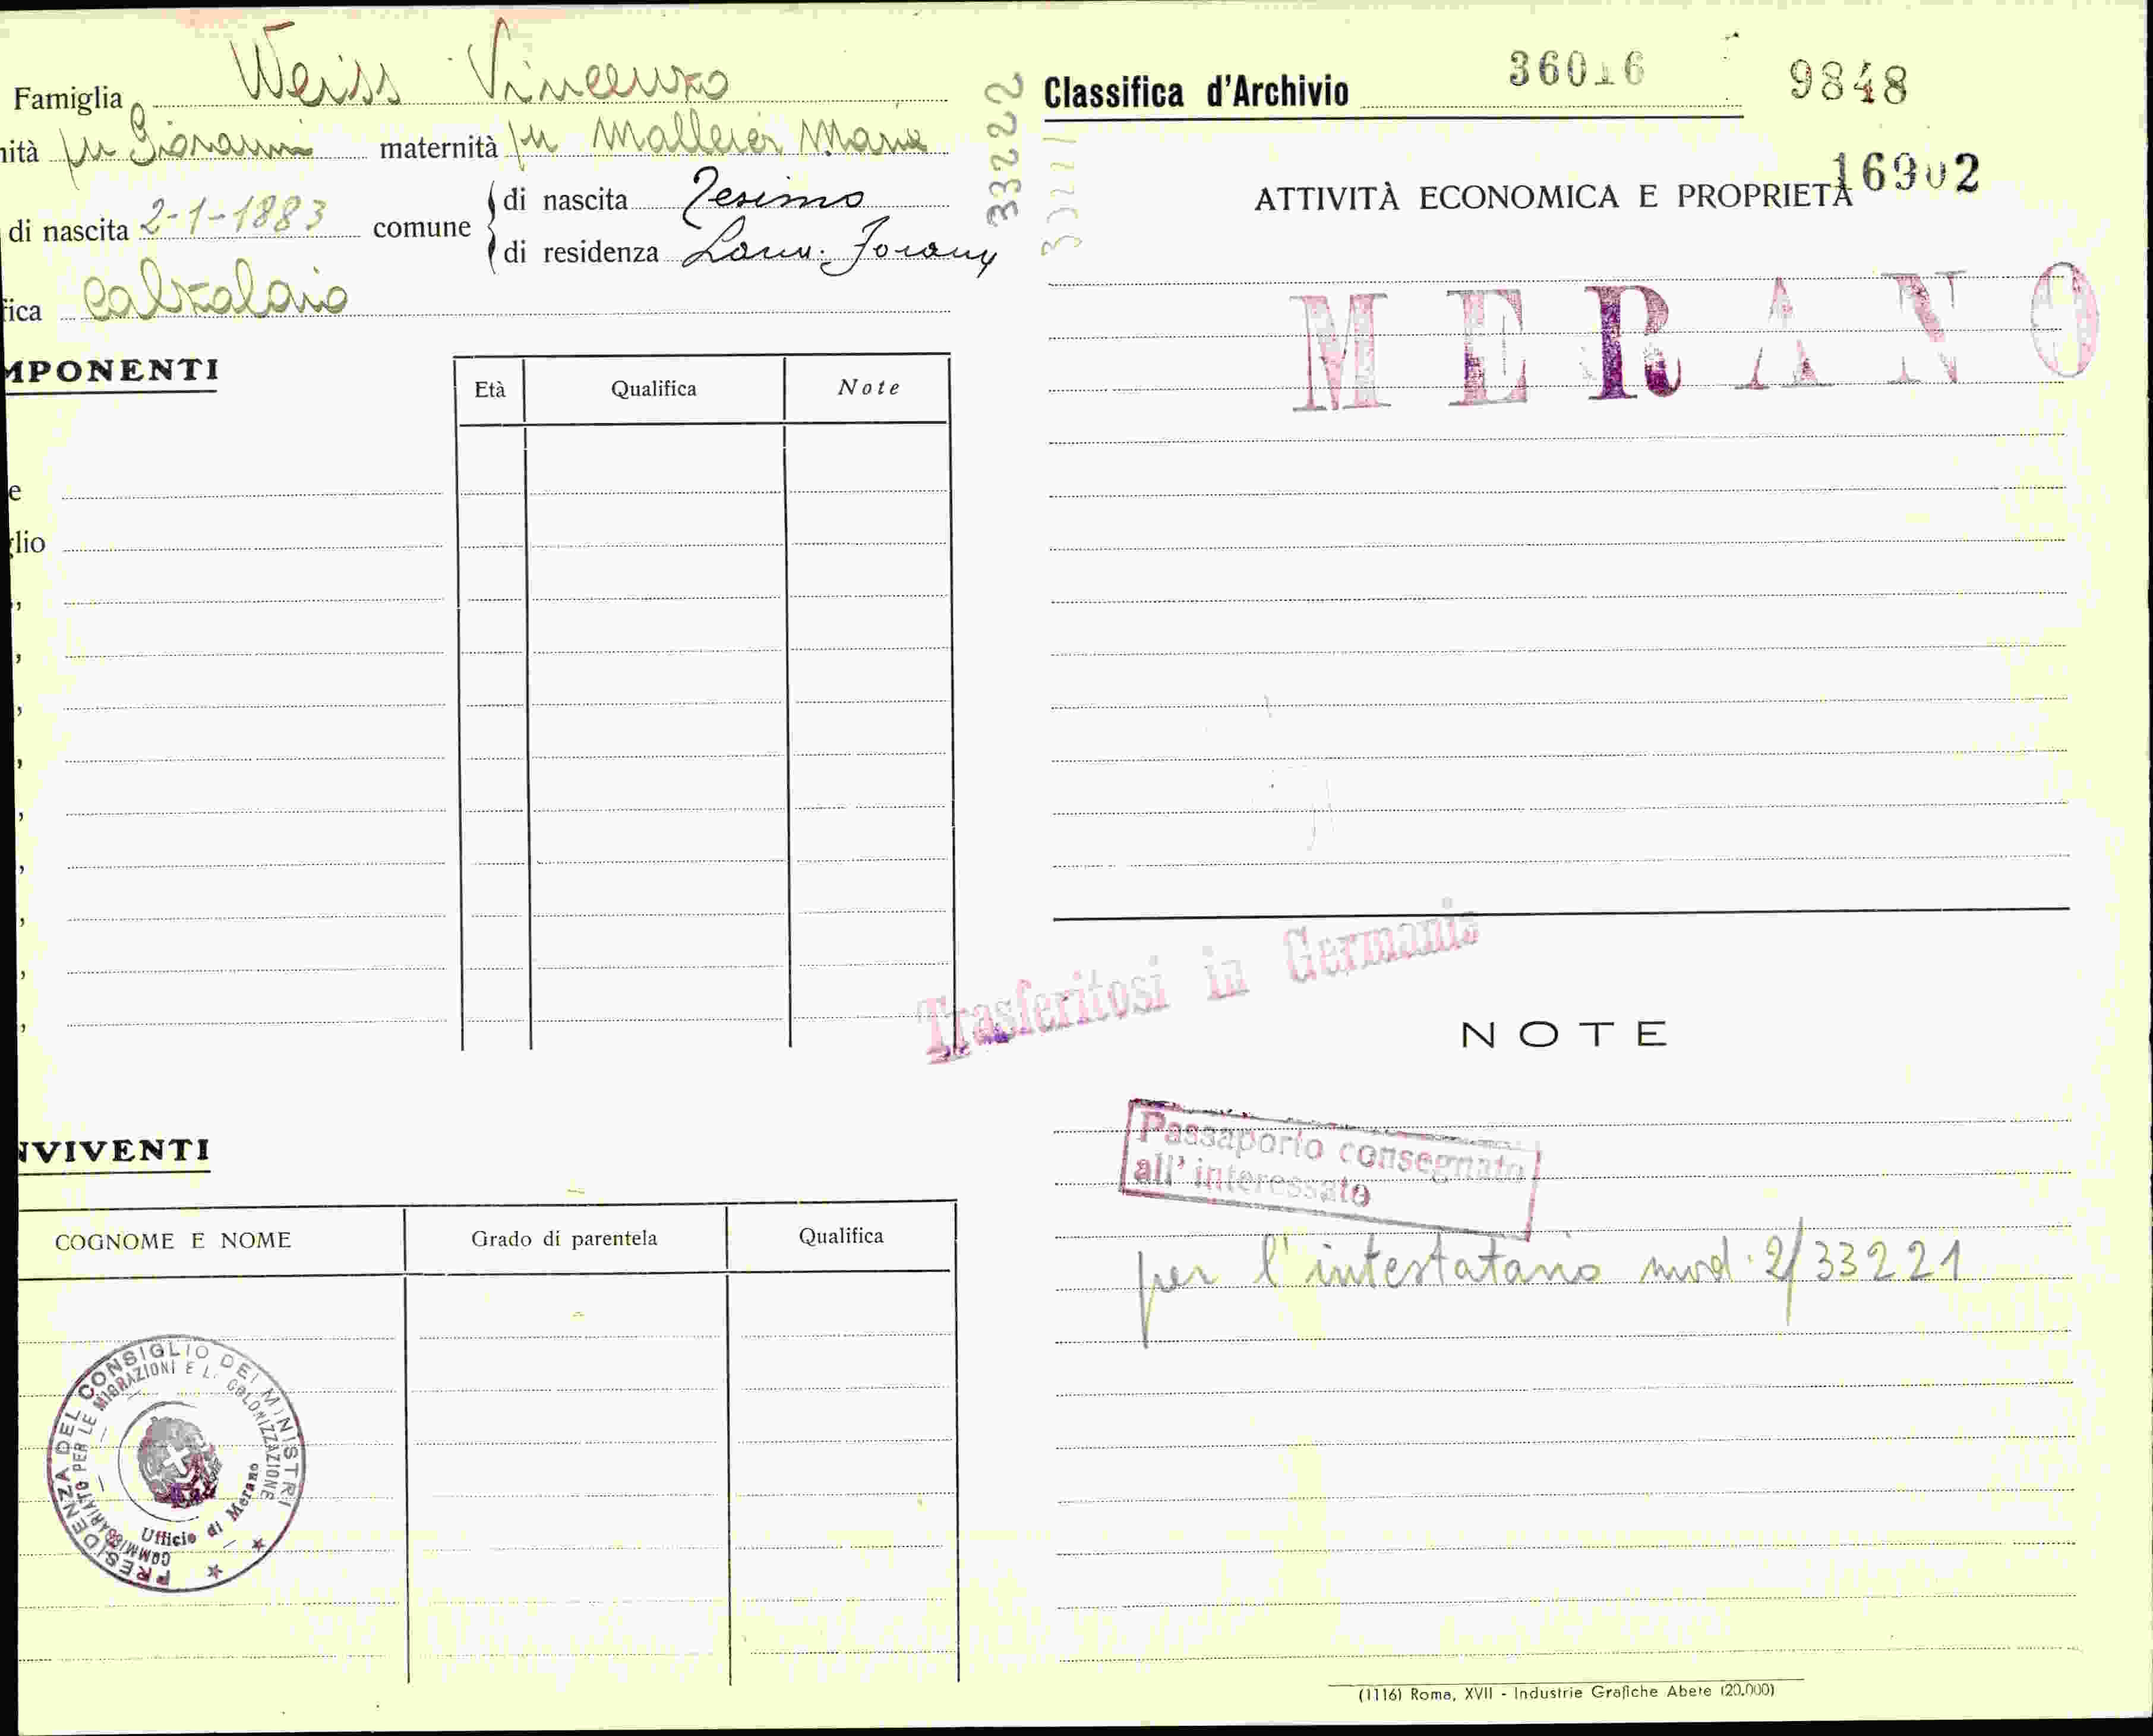 Famiglia Weiss Vincenzo
nità fu Giovanni maternità fu Malleier Maria
di nascita 2-1-1883 comune di nascita Tesimo
di residenza Lana. Forany
fica calzolaio
MPONENTI
Età Qualifica Note
e
glio
NVIVENTI
COGNOME E NOME Grado di parentela Qualifica
PRESIDENZA DEL CONSIGLIO DEI MINISTRI
COMMISSARIATO PER LE MIGRAZIONI E L. COLONIZZAZIONE
Ufficio di Merano
332222
33221
Classifica d'Archivio 36016 9848
ATTIVITÀ ECONOMICA E PROPRIETÀ 16902
MERANO
Trasferitosi in Germania
NOTE
Passaporto consegnato
all'interessato
per l'intestatario mod. 2/33221
(1116) Roma, XVII - Industrie Grafiche Abete (20.000)